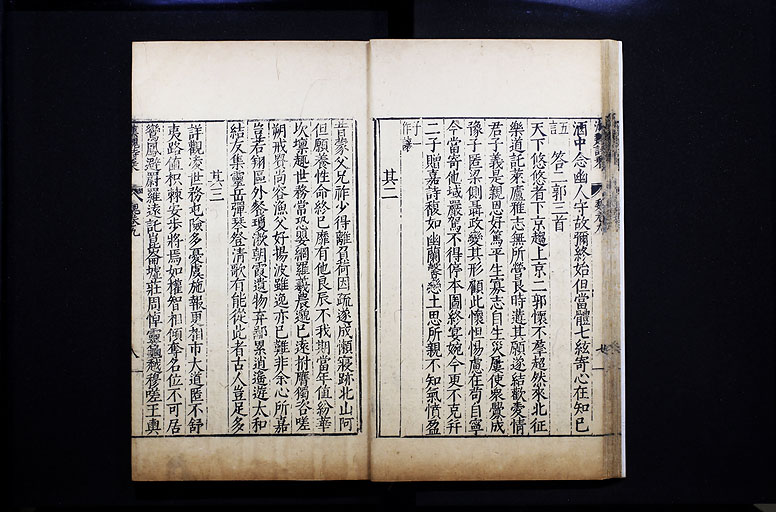 酒中念幽人守故彌終始但當體七絃寄心在知已
五言 答二郭三首
天下悠悠者下京趨上京二郭懷不羣超然來北征
樂道託萊廬雅志無所營良時遘其願遂結歡愛情
君子義是親恩好篤平生寡志自生災屢使衆釁成
豫子匿梁側聶政變其形顧此懷怛惕慮在苟自寧
今當寄他域嚴駕不得停本圖終宴婉今更不克并
二子贈嘉詩馥如幽蘭馨戀土思所親不知氣憤盈
其二
昔蒙父兄祚少得離負荷因疏遂成懶寢跡北山阿
但願養性命終已靡有他良辰不我期當年值紛華
坎壈趣世務常恐嬰網羅羲農邈已遠拊膺獨咨嗟
朔戒貴尚容漁父好揚波雖逸亦已難非余心所嘉
豈若翔區外飡瓊漱朝霞遺物棄鄙累逍遙遊太和
結友集靈岳彈琴登清歌有能從此者古人豈足多
其三
詳觀凌世務屯險多憂虞施報更相市大道匿不舒
夷路值枳棘安步將焉如權智相傾奪名位不可居
鸞鳳避罻羅遠託崑崙墟莊周悼靈龜越穆嗟王輿